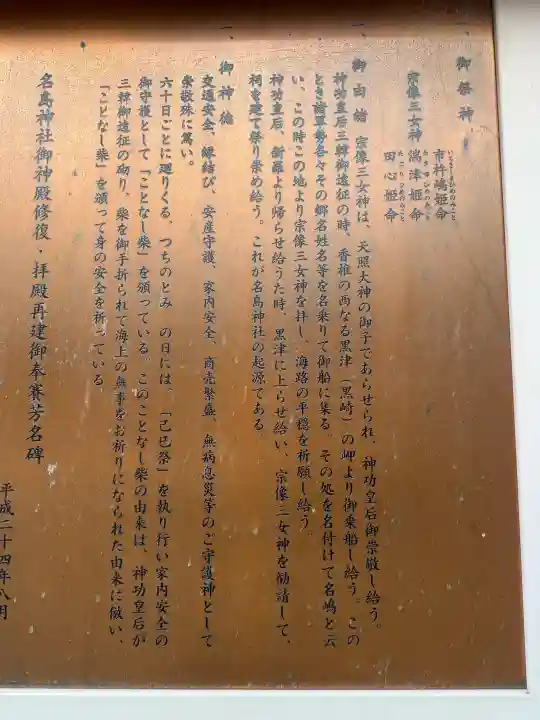 一、御祭神
市杵嶋姫命
いちきしまひめのみこと
宗像三女神 湍津姫命
たぎつひめのみこと
田心姫命
たごりひめのみこと
一、御由緒 宗像三女神は、天照大神の御子であらせられ、神功皇后御崇敬し給う。
神功皇后三韓御遠征の時、香椎の西なる黒津（黒崎）の岬より御乗船し給う。この
とき諸軍勢各々その郷名姓名等を名乗りて御船に集る。その処を名付けて名嶋と云
い、この時この地より宗像三女神を拝し、海路の平穏を祈願し給う。
神功皇后、新羅より帰らせ給うた時、黒津に上らせ給い、宗像三女神を勧請して、
祠を建て祭り崇め給う。これが名島神社の起源である。
一、御神徳
交通安全、縁結び、安産守護、家内安全、商売繁盛、無病息災等のご守護神として
崇敬殊に篤い。
六十日ごとに廻りくる、つちのとみ の日には、「己巳祭」を執り行い家内安全の
御守護として「ことなし柴」を頒っている。このことなし柴の由来は、神功皇后が
三韓御遠征の砌り、柴を御手折られて海上の無事をお祈りになられた由来に倣い、
「ことなし柴」を頒って身の安全を祈っている。
名島神社御神殿修復・拝殿再建御奉賽芳名碑
平成二十四年八月